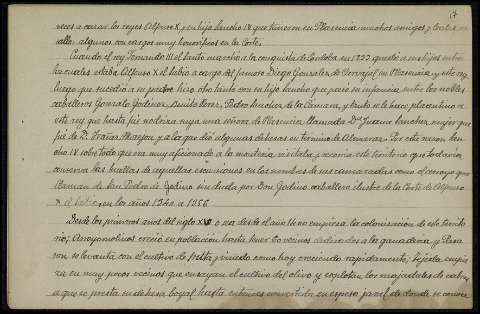 17
veces a cazar los reyes Alfonso X, y su hijo Sancho IV que tuvieron en Plasencia muchos amigos, y todos
ellos algunos con cargos muy honoríficos en la Corte.
Cuando el rey Fernando III el Santo marchó a la conquista de Córdoba en 1233 quedó a sus hijos entre
los cuales estaba Alfonso X el Sabio a cargo del famoso Diego Gonzalez de Carvajal en Plasencia y este rey
luego que sucedió a su padre hizo otro tanto con su hijo Sancho que pasó su infancia entre los nobles
caballeros Gonzalo Godinez, Benito Perez, Pedro Sanchez de la Camara, y tanto se le hace placentino a
este rey que hasta fué nodriza suya una señora de Plasencia llamada Dña Juana Sanchez, mujer que
fué de D. Frañas Monzon y a la que dió algunas dehesas en termino de Almaraz. Por esta razon San-
cho IV sobre todo que era muy aficionado a la monteria visitaba y recorria este territorio que todavía
conserva las huellas de aquellas escursiones en los nombres de sus camaradas como el arroyo que
llaman de San Pedro de Godino sin duda por Don Godino caballero ilustre de la Corte de Alfonso
X el Sabio, en los años 1240 a 1256.
Desde los primeros años del siglo XV o sea desde el año 1400 empieza la colonizacion de este territo-
rio; Arroyomolinos creció en poblacion hasta tener 20 vecinos dedicados a la ganaderia, y Pasa-
ron se levanta con el cultivo de fruta y viñedo como hoy creciendo rapidamente; Tejeda empie-
za en muy pocos vecinos que ensayan el cultivo del olivo y explotan los majadales de cabras
a que se presta su dehesa boyal hasta entonces convertida en espeso jaral de donde se conser-